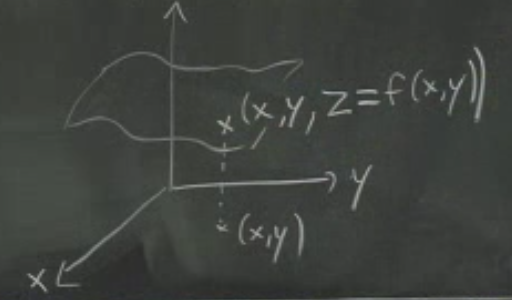 (x,y, z=f(x,y))
y
(x,y)
x